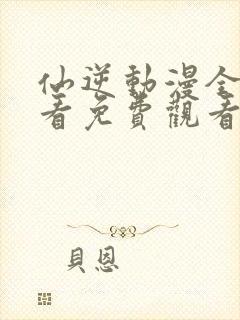 仙逆動漫全
看免費觀看
貝恩